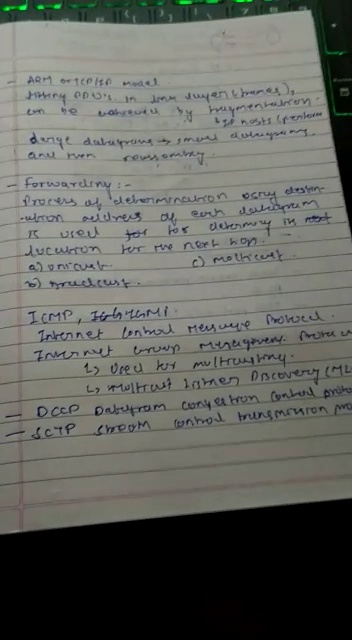 - ARM or TCP/IP model
PDU's in link layer (frames),
can be by fragmentation.
IP hosts (perform
large datagrams → small datagrams
and then reassembly.
- Forwarding :-
Process of determination using destin-
-ation address of each datagram
is used for determing in next
location for the next hop.
a) unicast c) multicast
b) broadcast.
ICMP,
Internet Control Message Protocol.
Internet Group Management Protoco
↳ Used for multicasting.
↳ Multicast Listner Discovery (ML
- DCCP Datagram congestion control proto
- SCTP Stream control transmission